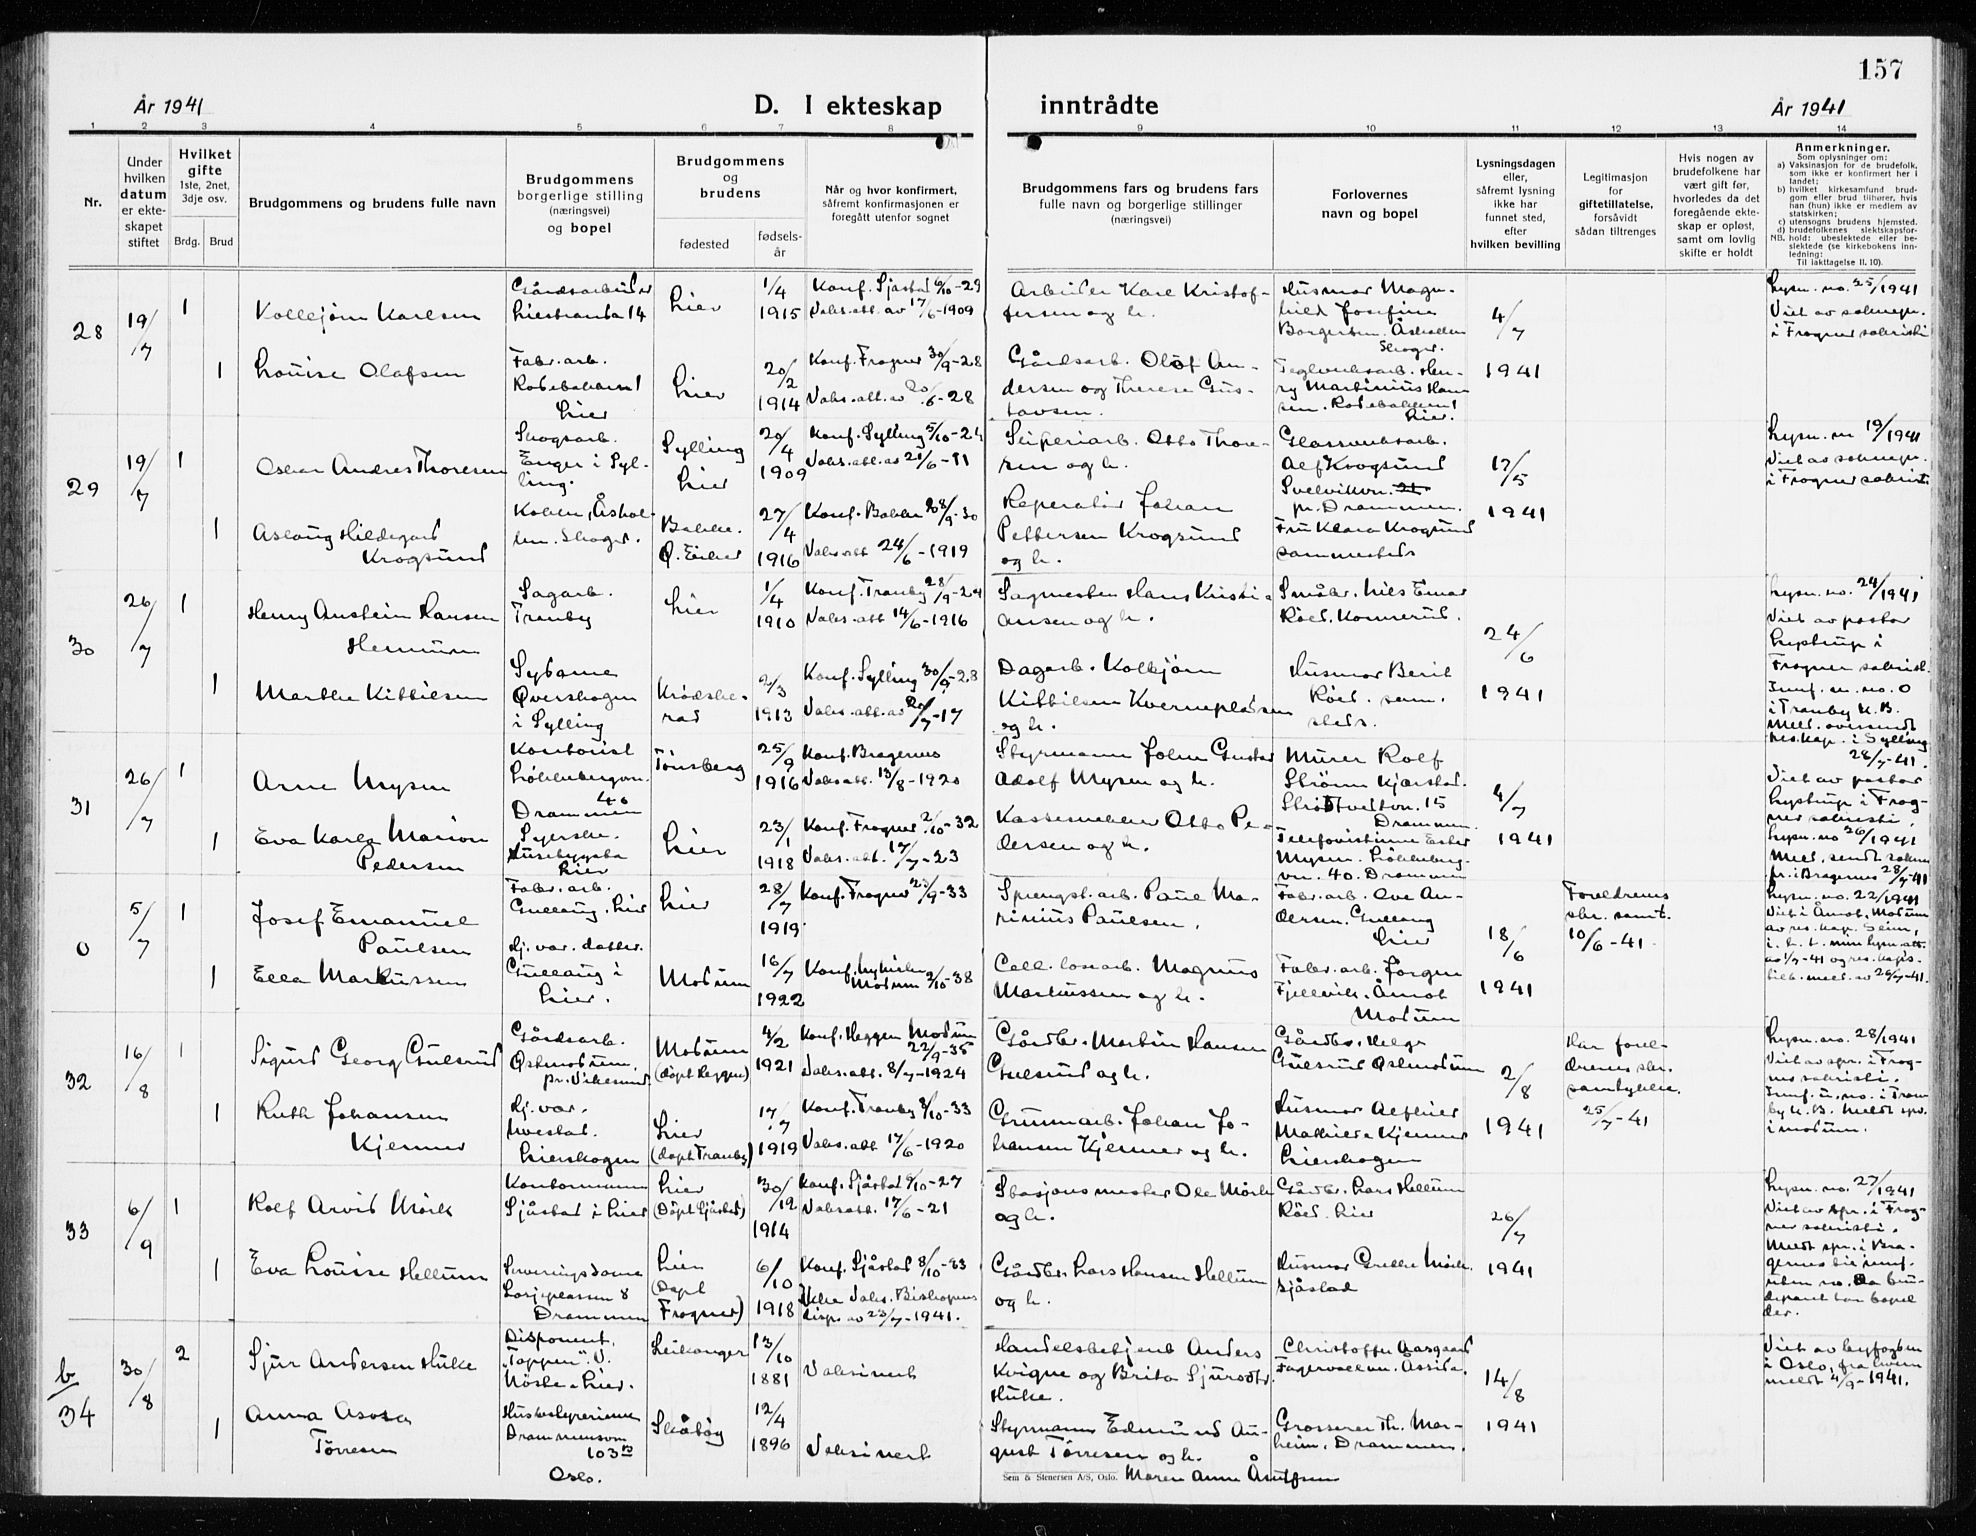 157
År 1941
D. I ekteskap inntrådte
År 1941
1 2 3 4 5 6 7 8 9 10 11 12 13 14
Nr.
Under
hvilken
datum
er ekte-
skapet
stiftet
Hvilket
gifte
1ste, 2net,
3dje osv.
Brdg. Brud
Brudgommens og brudens fulle navn
Brudgommens
borgerlige stilling
(næringsvei)
og bopel
Brudgommens
og
brudens
fødested
fødsels-
år
Når og hvor konfirmert,
såfremt konfirmasjonen er
foregått utenfor sognet
Brudgommens fars og brudens fars
fulle navn og borgerlige stillinger
(næringsvei)
Forlovernes
navn og bopel
Lysningsdagen
eller,
såfremt lysning
ikke har
funnet sted,
efter
hvilken bevilling
Legitimasjon
for
giftetillatelse,
forsåvidt
sådan tiltrenges
Hvis nogen av
brudefolkene har
vært gift før,
hvorledes da det
foregående ekte-
skap er opløst,
samt om lovlig
skifte er holdt
Anmerkninger.
Som oplysninger om:
a) Vaksinasjon for de brudefolk,
som ikke er konfirmert her i
landet;
b) hvilket kirkesamfund brud-
gom eller brud tilhører, hvis
han (hun) ikke er medlem av
statskirken;
c) utensogns brudens hjemsted.
d) brudefolkenes slektskapsfor-
NB. hold: ubeslektede eller be-
slektede (se kirkebokens inn-
ledning:
Til iakttagelse II. 10).
28
19/7
1
Kollejørn Karlsen
Gårdsarbeider
Lierstranda 14
Lier
1/4
1915
Konf. Sjåstad 6/10-29
Vaks.att. av 17/6-1909
Arbeider Kare Kristof-
fersen og h.
Husmor Magn-
hild Josefine
Borgersen. Åskollen
Skoger.
4/7
1941
Lysn. no. 25/1941
Viet av soknepr.
i Frogner sakristi
1
Louise Olafsen
Fabr.arb.
Lier
Lier
20/2
1914
Konf. Frogner 30/9-28
Vaks.att. av 20/6-28
Gårdsarb. Olof An-
dersen og Therese Gus-
tavsen.
Teglverksarb. Hen-
ry Martinius Han-
sen.
Lier.
29
19/7
1
Oskar Andres Thoresen
Skogsarb.
Enger i Syl-
ling.
Sylling
Lier
20/4
1909
Konf. Sylling 5/10-24
Vaks.att. av 21/6-11
Sliperiarb. Otto Thore-
sen og h.
Glassverksarb.
Alf Krogsund
Svelvikvn.
pr. Drammen.
17/5
1941
Lysn. nr 19/1941
Viet av soknepr.
i Frogner sakristi.
1
Aslaug Hildegard
Krogsund
Åskol-
len. Skoger.
Bakke.
Ø. Eiker
27/4
1916
Konf. Bakke 28/9-30
Vaks.att 24/6-1919
Reperatør Johan
Pettersen Krogsund
og h.
Fru Klara Krogsund
sammesteds
30
26/7
1
Henry Anstein Hansen
Hennum
Sagarb.
Tranby
Lier
1/4
1910
Konf. Tranby 28/9-24
Vaks.att 14/6-1916
Sagmester Hans Kristi-
ansen og h.
Småbr. Nils Einar
Røed. Konnerud.
24/6
1941
Lysn. no. 24/1941
Viet av pastor
Lystrup i
Frogner sakristi.
Innf. u. no. 0
i Tranby K.B.
Meld. oversendt
res.kap. i Sylling
28/7-41.
1
Marthe Kittilsen
Sydame
Øverskogen
i Sylling
Krødshe-
rad
2/3
1913
Konf. Sylling 30/9-28
Vaks.att. av 20/7-17
Dagarb. Kolbjørn
Kittilsen Kverneplassen
og h.
Husmor Berit
Røed. samm.
steds.
31
26/7
1
Arne Mysen
Kontorist
Løkkebergvn.
40
Drammen
Tønsberg
25/9
1916
Konf. Bragernes
Vaks.att. 13/8-1920
Styrmann John Gustav
Adolf Mysen og h.
Murer Rolf
Strøm Kjærstad.
Strøtvetvn. 15
Drammen.
4/7
1941
Viet av pastor
Lystrup i Frog-
ner sakristi.
Lysn. no 26/1941
Meld. sendt sokne-
pr. i Bragernes 28/7-41
1
Eva Karla Marion
Pedersen
Syerske.
Husebygata
Lier
Lier
23/1
1918
Konf. Frogner 2/10-32
Vaks.att. 17/7-23
Kasserer Otto Pe-
dersen og h.
Telefonistinne Ester
Mysen. Løkkeberg-
vn. 40. Drammen
0
5/7
1
Josef Emanuel
Paulsen
Fabr. arb.
Gullaug. Lier
Lier
28/7
1919
Konf. Frogner 23/9-33
Sprengst.arb. Paul Ma-
rinius Paulsen.
Fabr.arb. Ove An-
dersen. Gullaug
Lier
18/6
1941
Foreldrenes
skr. samt.
10/6-41.
Lysn. no. 22/1941
Viet i Åmot, Modum
av res.kap. Seim,
1
Ella Markussen
Hj. vær. datter.
Gullaug i
Lier.
Modum
16/7
1922
Konf. Nykirke
Modum 2/10-38
Cell.losarb. Magnus
Markussen og h.
Fabr.arb. Jørgen
Fjellvik. Åmot
Modum
32
16/8
1
Sigurd Georg Gulsrud
Gårdsarb.
Østmodum.
pr. Vikesund.
Modum
(døpt Heggen)
4/2
1921
Konf. Heggen Modum
22/9-35
Vaks.att. 8/7-1924
Gårdbr. Martin Hansen
Gulsrud og h.
Gårdbr. Helge
Gulsrud Østmodum
2/8
1941
Har forel-
drenes skr.
samtykke.
25/7-41
Lysn. no. 28/1941
Viet av spr. i Frog-
ner sakristi.
Innf. u. no. i Tran-
by K.B. Meldt spr.
i Modum.
1
Ruth Johansen
Kjenner
Hj. vær.
Lierskogen
Lier
(døpt Tranby)
17/7
1919
Konf. Tranby 8/10-33
Vaks.att 17/6-1920
Grunnarb. Johan Jo-
hansen Kjenner og h.
Husmor
Mathilde Kjenner
Lierskogen
33
6/9
1
Rolf Arvid Mørk
Kontormann
Sjåstad i Lier
Lier
(Døpt Sjåstad)
30/12
1914
Konf. Sjåstad 6/10-27
Vaks.att. 17/6-21
Stasjonsmester Ole Mørk
og h.
Gårdbr. Lars Hellum
Røed. Lier
26/7
1941
Lysn. no. 27/1941
Viet av spr. i Frog-
ner sakristi.
Meldt spr. i Bra-
gernes
1
Eva Louise Hellum
Serveringsdame
Losjeplassen 8
Drammen
Lier
(Døpt
Frogner)
6/10
1918
Konf. Sjåstad 8/10-33
Ikke vaks. Bishopens
disp. av 23/7-1941.
Gårdbr. Lars Hansen Hellum
og h.
Husmor Grethe Mørk.
Sjåstad
b/34
30/8
2
Sjur Andersen Huke
Disponent.
"Toppen". V.
Nøste. Lier.
Leikanger
13/10
1881
Vaksinert
Handelsbetjent Anders
Kvigne og Brita Sjursdtr.
Huke.
Christoffer Aasgaard
Fagervollvn. Åssiden.
14/8
1941
Viet av byfogden
i Oslo, fra hvem
meldt 4/9-1941.
1
Anna
Tørresen
Husbestyrerinne
Drammensvn
103
Oslo.
Skåtøy
12/4
1896
Vaksinert
Styrmann Edmund Au-
gust Tørresen og h.
Maren Anne Knutsen
Grosserer Th. Mar-
heim. Drammen.
Sem & Stenersen A/S, Oslo.